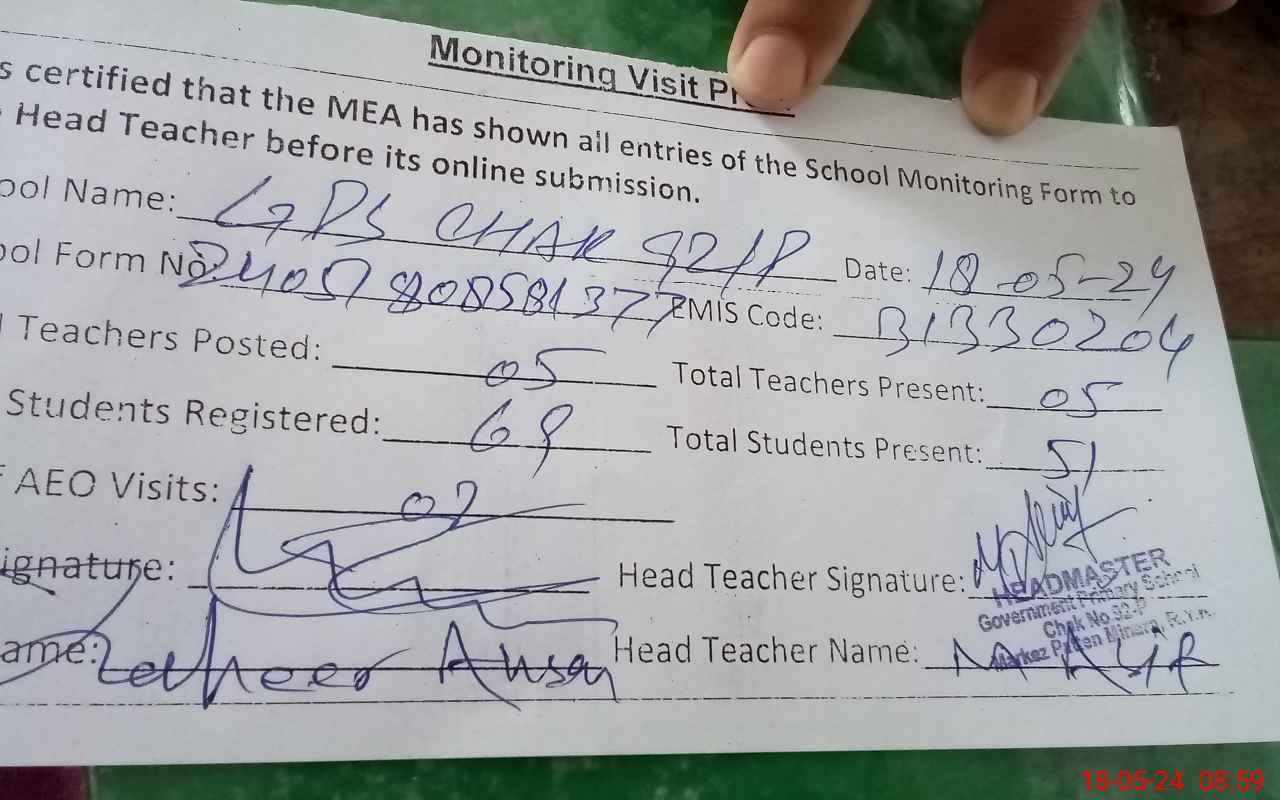 Monitoring Visit
s certified that the MEA has shown all entries of the School Monitoring Form to
Head Teacher before its online submission.
ool Name: GPS CHAK 92/P Date: 18-05-24
ool Form No 24051808581377 EMIS Code: 31330204
Teachers Posted: 05 Total Teachers Present: 05
Students Registered: 69 Total Students Present: 51
AEO Visits: 02
ignature: Head Teacher Signature:
HEADMASTER
Government Primary School
Chak No.92-P
Markaz Pattan Minara, R.Y.K.
ame: Head Teacher Name:
18-05-24 08:59